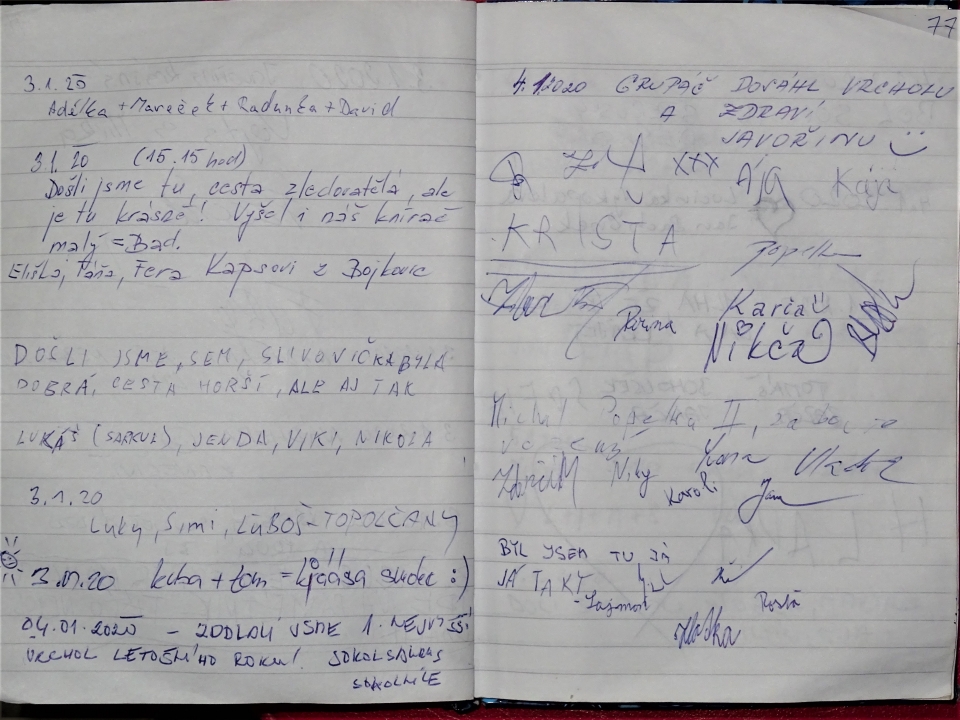 3.1.20
Adélka + Mareček + Radunka + David
3.1.20 (15.15 hod)
Došli jsme tu, cesta zledovatělá, ale
je tu krásně! Vyšel i náš knírač
malý = Bad.
Eliška, Táňa, Fera Kapsovi z Bojkovic
DOŠLI JSME, SEM, SLIVOVIČKA BYLA
DOBRÁ, CESTA HORŠÍ, ALE AJ TAK
LUKÁŠ (SARKUL), JENDA, VIKI, NIKOLA
3.1.20
Luky, Simi, ĽUBOŠ - TOPOĽČANY
3.01.20 kuba + tom = krása :)
04.01.2020 - ZDOLALI JSME 1. NEJVYŠŠÍ
VRCHOL LETOŠNÍHO ROKU!
SOKOLNICE
77
4.1.2020 GRUPÁČ DOSÁHL VRCHOLU
A ZDRAVÍ
JAVOŘINU
XXX Ája Kája
KRISTA
Popelka
Karia
Nikča
Michal Popelka II,
Niky Vlada
Karoli Jana
BYL JSEM TU JÁ
JÁ TAKY
Rosťa